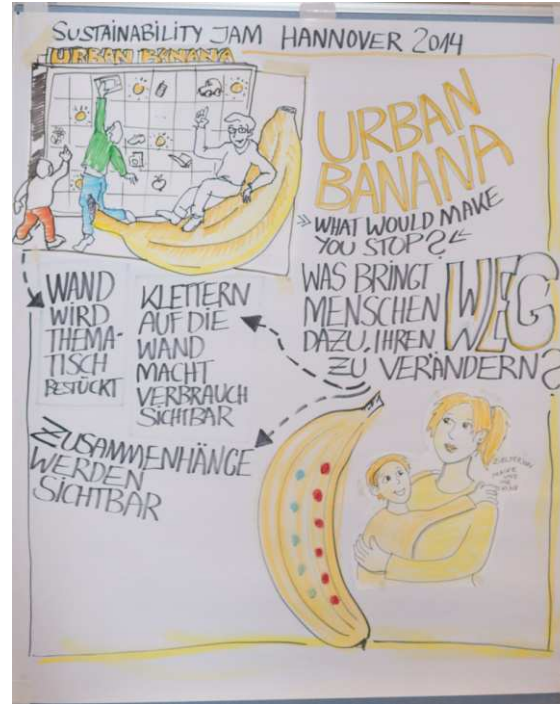 SUSTAINABILITY JAM HANNOVER 2014
URBAN BANANA
URBAN
BANANA
WHAT WOULD MAKE
YOU STOP?
WAS BRINGT
MENSCHEN
DAZU, IHREN WEG
ZU VERÄNDERN?
WAND
WIRD
THEMA-
TISCH
BESTÜCKT
KLETTERN
AUF DIE
WAND
MACHT
VERBRAUCH
SICHTBAR
ZUSAMMENHÄNGE
WERDEN
SICHTBAR